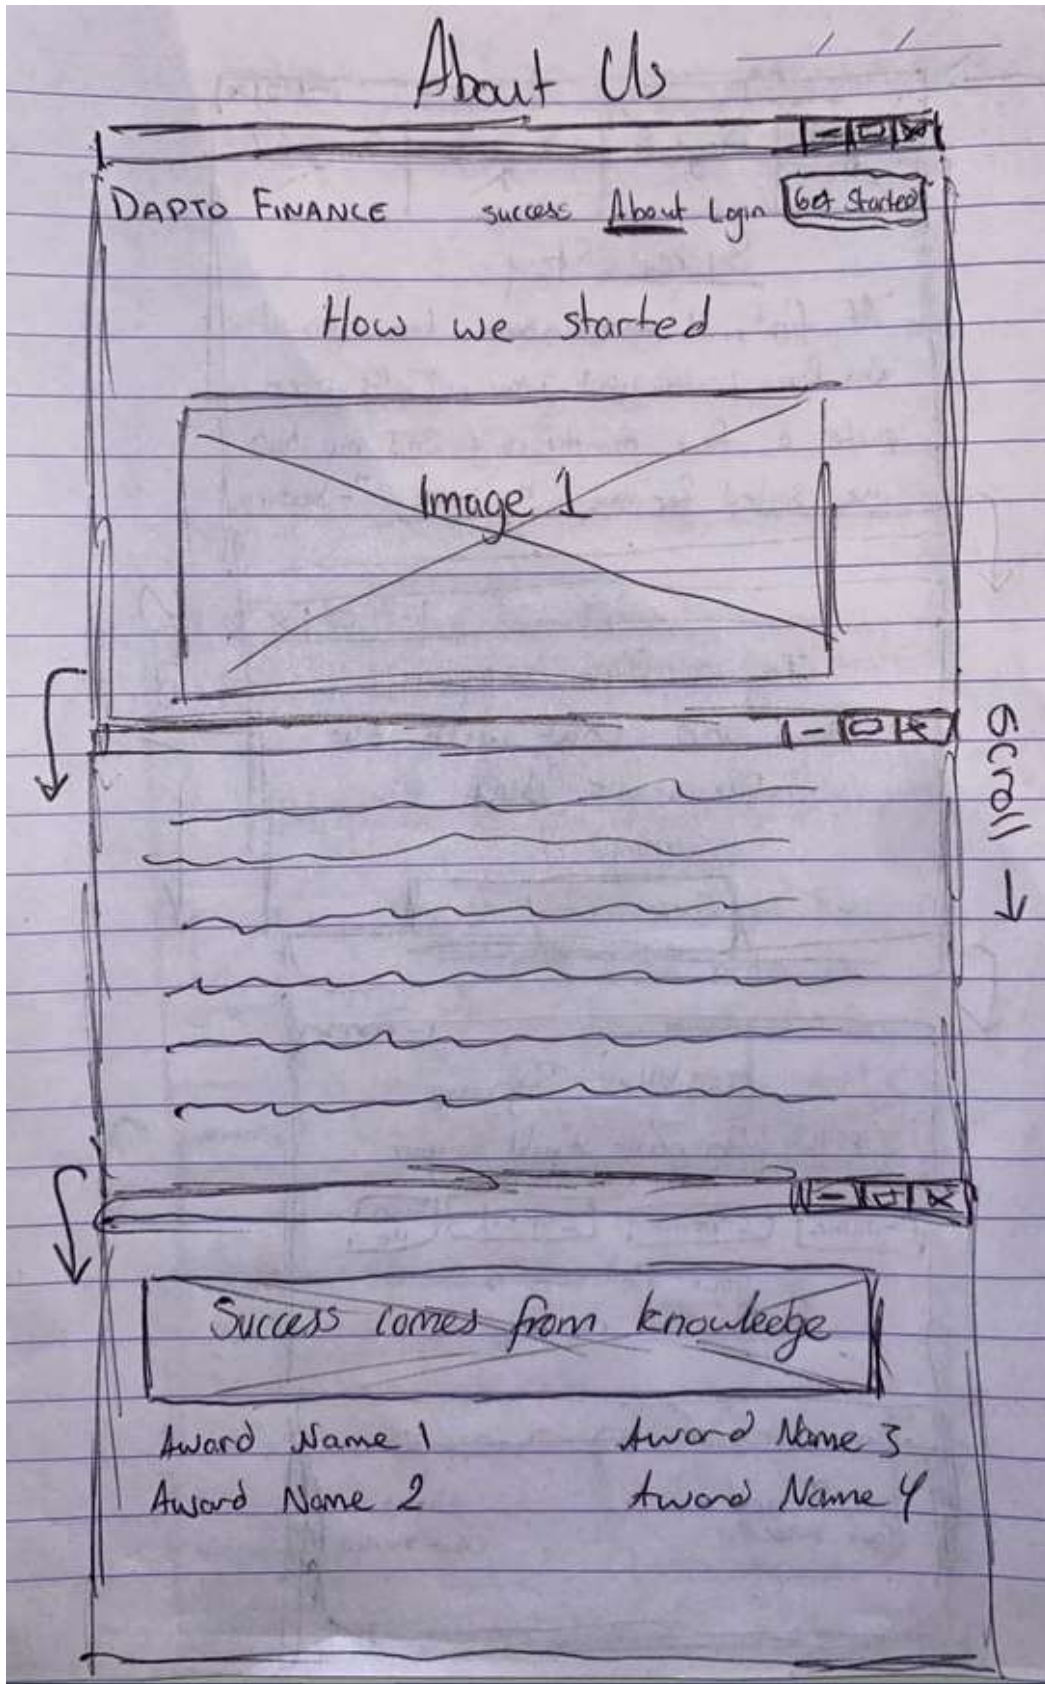 About Us
DAPTO FINANCE success About Login Get Started
How we started
Image 1
Scroll
Success comes from knowledge
Award Name 1 Award Name 3
Award Name 2 Award Name 4